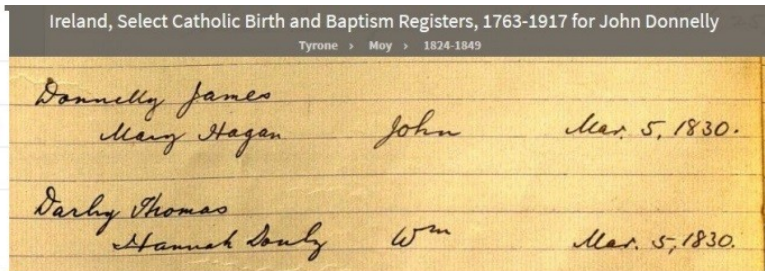 Ireland, Select Catholic Birth and Baptism Registers, 1763-1917 for John Donnelly
Tyrone > Moy > 1824-1849
Donnelly James
Mary Hagan John Mar. 5, 1830.
Darby Thomas
Hannah Wm Mar. 5, 1830.